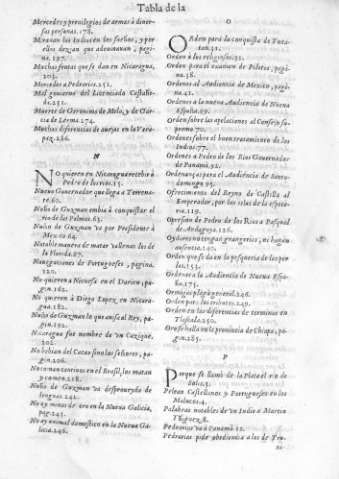 Tabla de la
Mercedes y preuilegios de armas à diuer-
sas personas. 178.
Mirauan los Indios en los sueños, y por
ellos dezian que adeuinauan, pagi-
na. 197.
Muchas frutas que se dan en Nicaragua,
203.
Mercedes a Pedrarias. 251.
Mal gouernar del Licenciado Castañe-
da. 251.
Muerte de Geronimo de Melo, y de Gar-
cia de Lerma 274.
Muchas diferencias de aueias en la Vera-
pez. 286.
N
NO quieren en Nicaragua recebir à
Pedro de los rios. 15.
Nueuo Gouernador que llega a Terrena-
te. 60.
Nuño de Guzman embia à conquistar el
rio de las Palmas. 63.
Nuño de Guzman va por Presidente à
Mexico. 64.
Notable manera de matar vallenas los de
la Florida. 87.
Nauegaciones de Portugueses, pagina,
120.
No quieren a Nicuesa en el Darien, pa-
gin. 182.
No quieren à Diego Lopez en Nicara-
gua. 182.
Nuño de Guzman lo que auisa al Rey, pa-
gin. 192.
Nicaragua fue nombre de vn Cazique,
202.
No bebian del Cacao sino los señores, pa-
gin. 206.
No toman cautiuos en el Brasil, los matan
y comen. 218.
Nuño de Guzman va desproueydo de
lenguas. 241.
No ay minas de oro en la Nueua Galicia,
pag. 245.
No ay animal domestico en la Nueua Ga-
licia. 246.
O
ORden para la conquista de Yuca-
tan. 31.
Orden à los religiosos. 31.
Orden para el examen de Pilotos, pagi-
na. 38.
Ordenes al Audiencia de Mexico, pagi-
na. 41.
Ordenes a la nueua Audiencia de Nueua
España.
Orden sobre las apelaciones al Consejo su-
premo. 72.
Ordenes sobre el buen tratamiento de los
Indios. 77.
Ordenes a Pedro de los Rios Gouernador
de Panamà. 92.
Ordenanças para el Audiencia de Santo
domingo. 95.
Ofrecimiento del Reyno de Castilla al
Emperador, por las islas de la especie-
ria. 119.
Opresion de Pedro de los Rios a Pasqual
de Andagoya. 126.
Oydores no tengan grangerias, ni hagan
ausencia. 240.
Orden que se da en la pesqueria de las per-
las. 153.
Ordenes a la Audiencia de Nueua Espa-
ña. 175.
Ormigas plaga general. 246.
Orden para los tributos. 249.
Orden en las diferencias de terminos en
Tlascala. 250.
Oro se halla en la prouincia de Chiapa, pa-
gin. 285.
P
POrque se llamò de la Plata el rio de
Solis. 3.
Pelean Castellanos y Portugueses en los
Malucos. 4.
Palabras notables de vn Indio a Martin
Yñiguez. 8.
Pedrarias va à Panamà. 12.
Pedrarias pide obediencia a los de Tru-